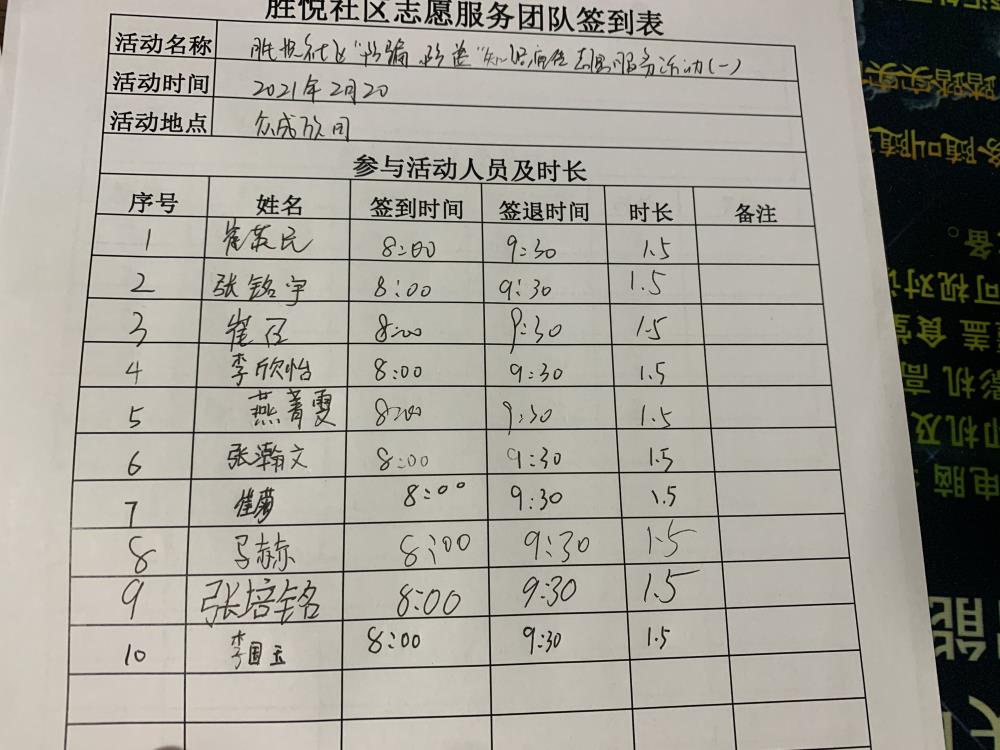 胜悦社区志愿服务团队签到表
活动名称 胜悦社区"防骗 防盗"知识宣传志愿服务活动(一)
活动时间 2021年2月20
活动地点 众成
参与活动人员及时长
序号 姓名 签到时间 签退时间 时长 备注
1 崔 民 8:00 9:30 1.5
2 张铭宇 8:00 9:30 1.5
3 崔 8:00 9:30 1.5
4 李欣怡 8:00 9:30 1.5
5 燕菁雯 8:00 9:30 1.5
6 张瀚文 8:00 9:30 1.5
7 崔 8:00 9:30 1.5
8 马赫 8:00 9:30 1.5
9 张培铭 8:00 9:30 1.5
10 李国玉 8:00 9:30 1.5